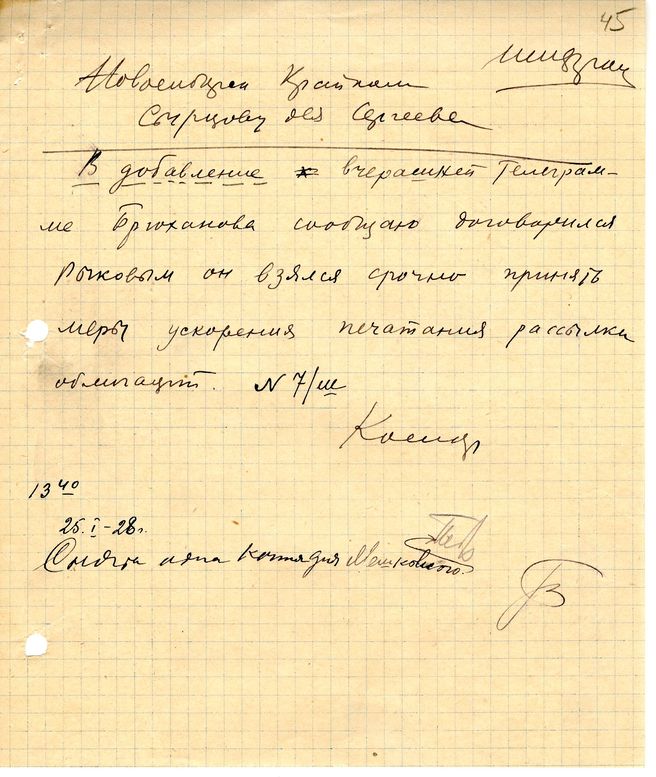 45
шифром
Новосибирск Крайком
Сырцову для Сергеева
В добавление к вчерашней телеграм-
ме Брюханова сообщаю договорился
Рыковым он взялся срочно принять
меры ускорения печатания рассылки
облигаций. N 7/ш
Косиор
13 40
25.I-28г.
Снята одна копия для Мешковского.